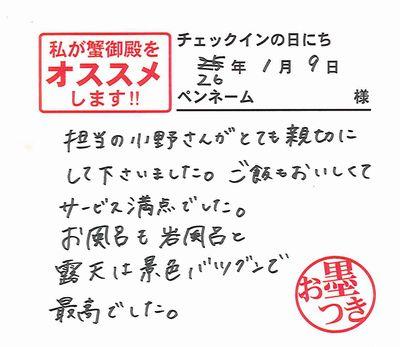 私が蟹御殿を
オススメ
します!!
チェックインの日にち
26年 1月 9日
ペンネーム 様
担当の小野さんがとても親切に
して下さいました。ご飯もおいしくて
サービス満点でした。
お風呂も岩風呂と
露天は景色バツグンで
最高でした。
お墨つき